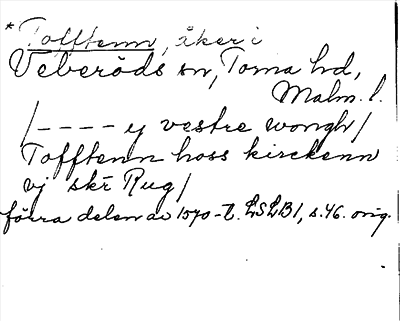 *Tofftenn, åker i
Veberöds sn, Torna hd,
Malm. l.
/---- y vestre wongh/
Tofftenn hoss kirckenn
vj skr Rug/
förra delen av 1570-t. LSLB1, s. 46. orig.